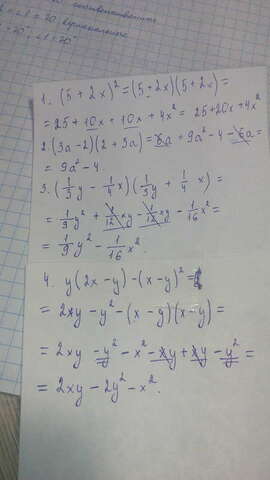 1. (5+2x)²=(5+2x)(5+2x)=
=25+10x+10x+4x²=25+20x+4x²
2. (3a-2)(2+3a)=6a+9a²-4-6a=
=9a²-4.
3. (1/3y - 1/4x)(1/3y + 1/4 x)=
=1/9y² + 1/12xy - 1/12xy - 1/16x²=
=1/9y² - 1/16x².
4. y(2x-y)-(x-y)²=
=2xy-y²-(x-y)(x-y)=
=2xy-y²-x²-xy+xy-y²=
=2xy-2y²-x².